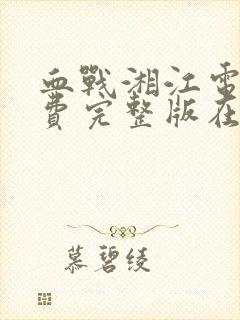 血戰湘江電
費完整版在
慕碧绫